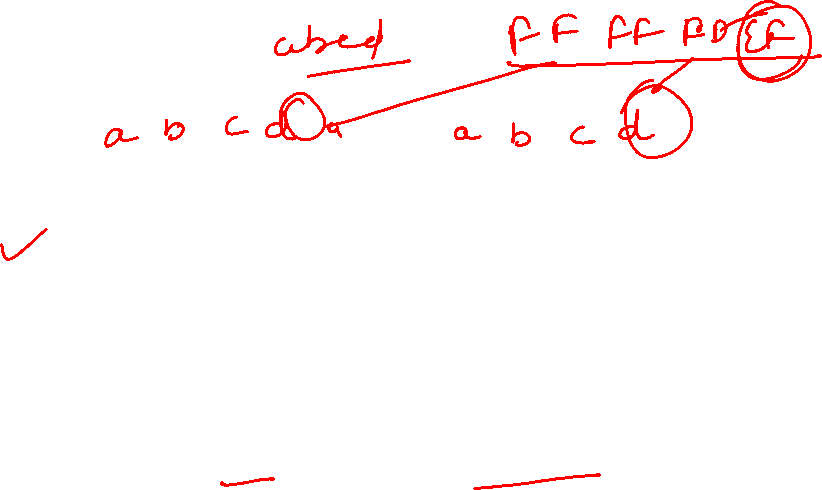 abcd FF FF FD EF
a b c d a a b c d